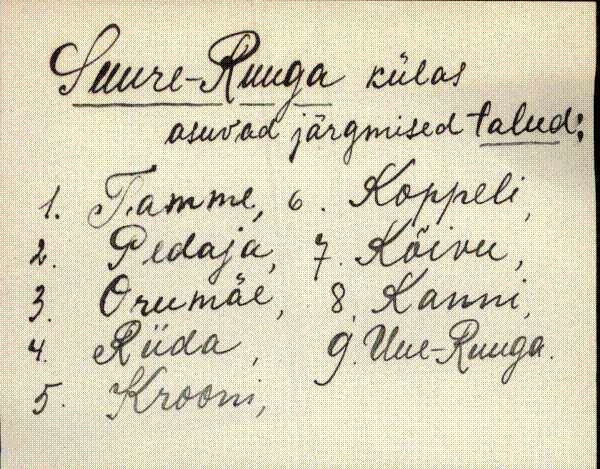 Suure-Ruuga külas
asuvad järgmised talud:
1. Tamme, 6. Koppeli,
2. Pedaja, 7. Kõivu,
3. Orumäe, 8. Kanni,
4. Riida, 9. Uue-Ruuga.
5. Krooni,